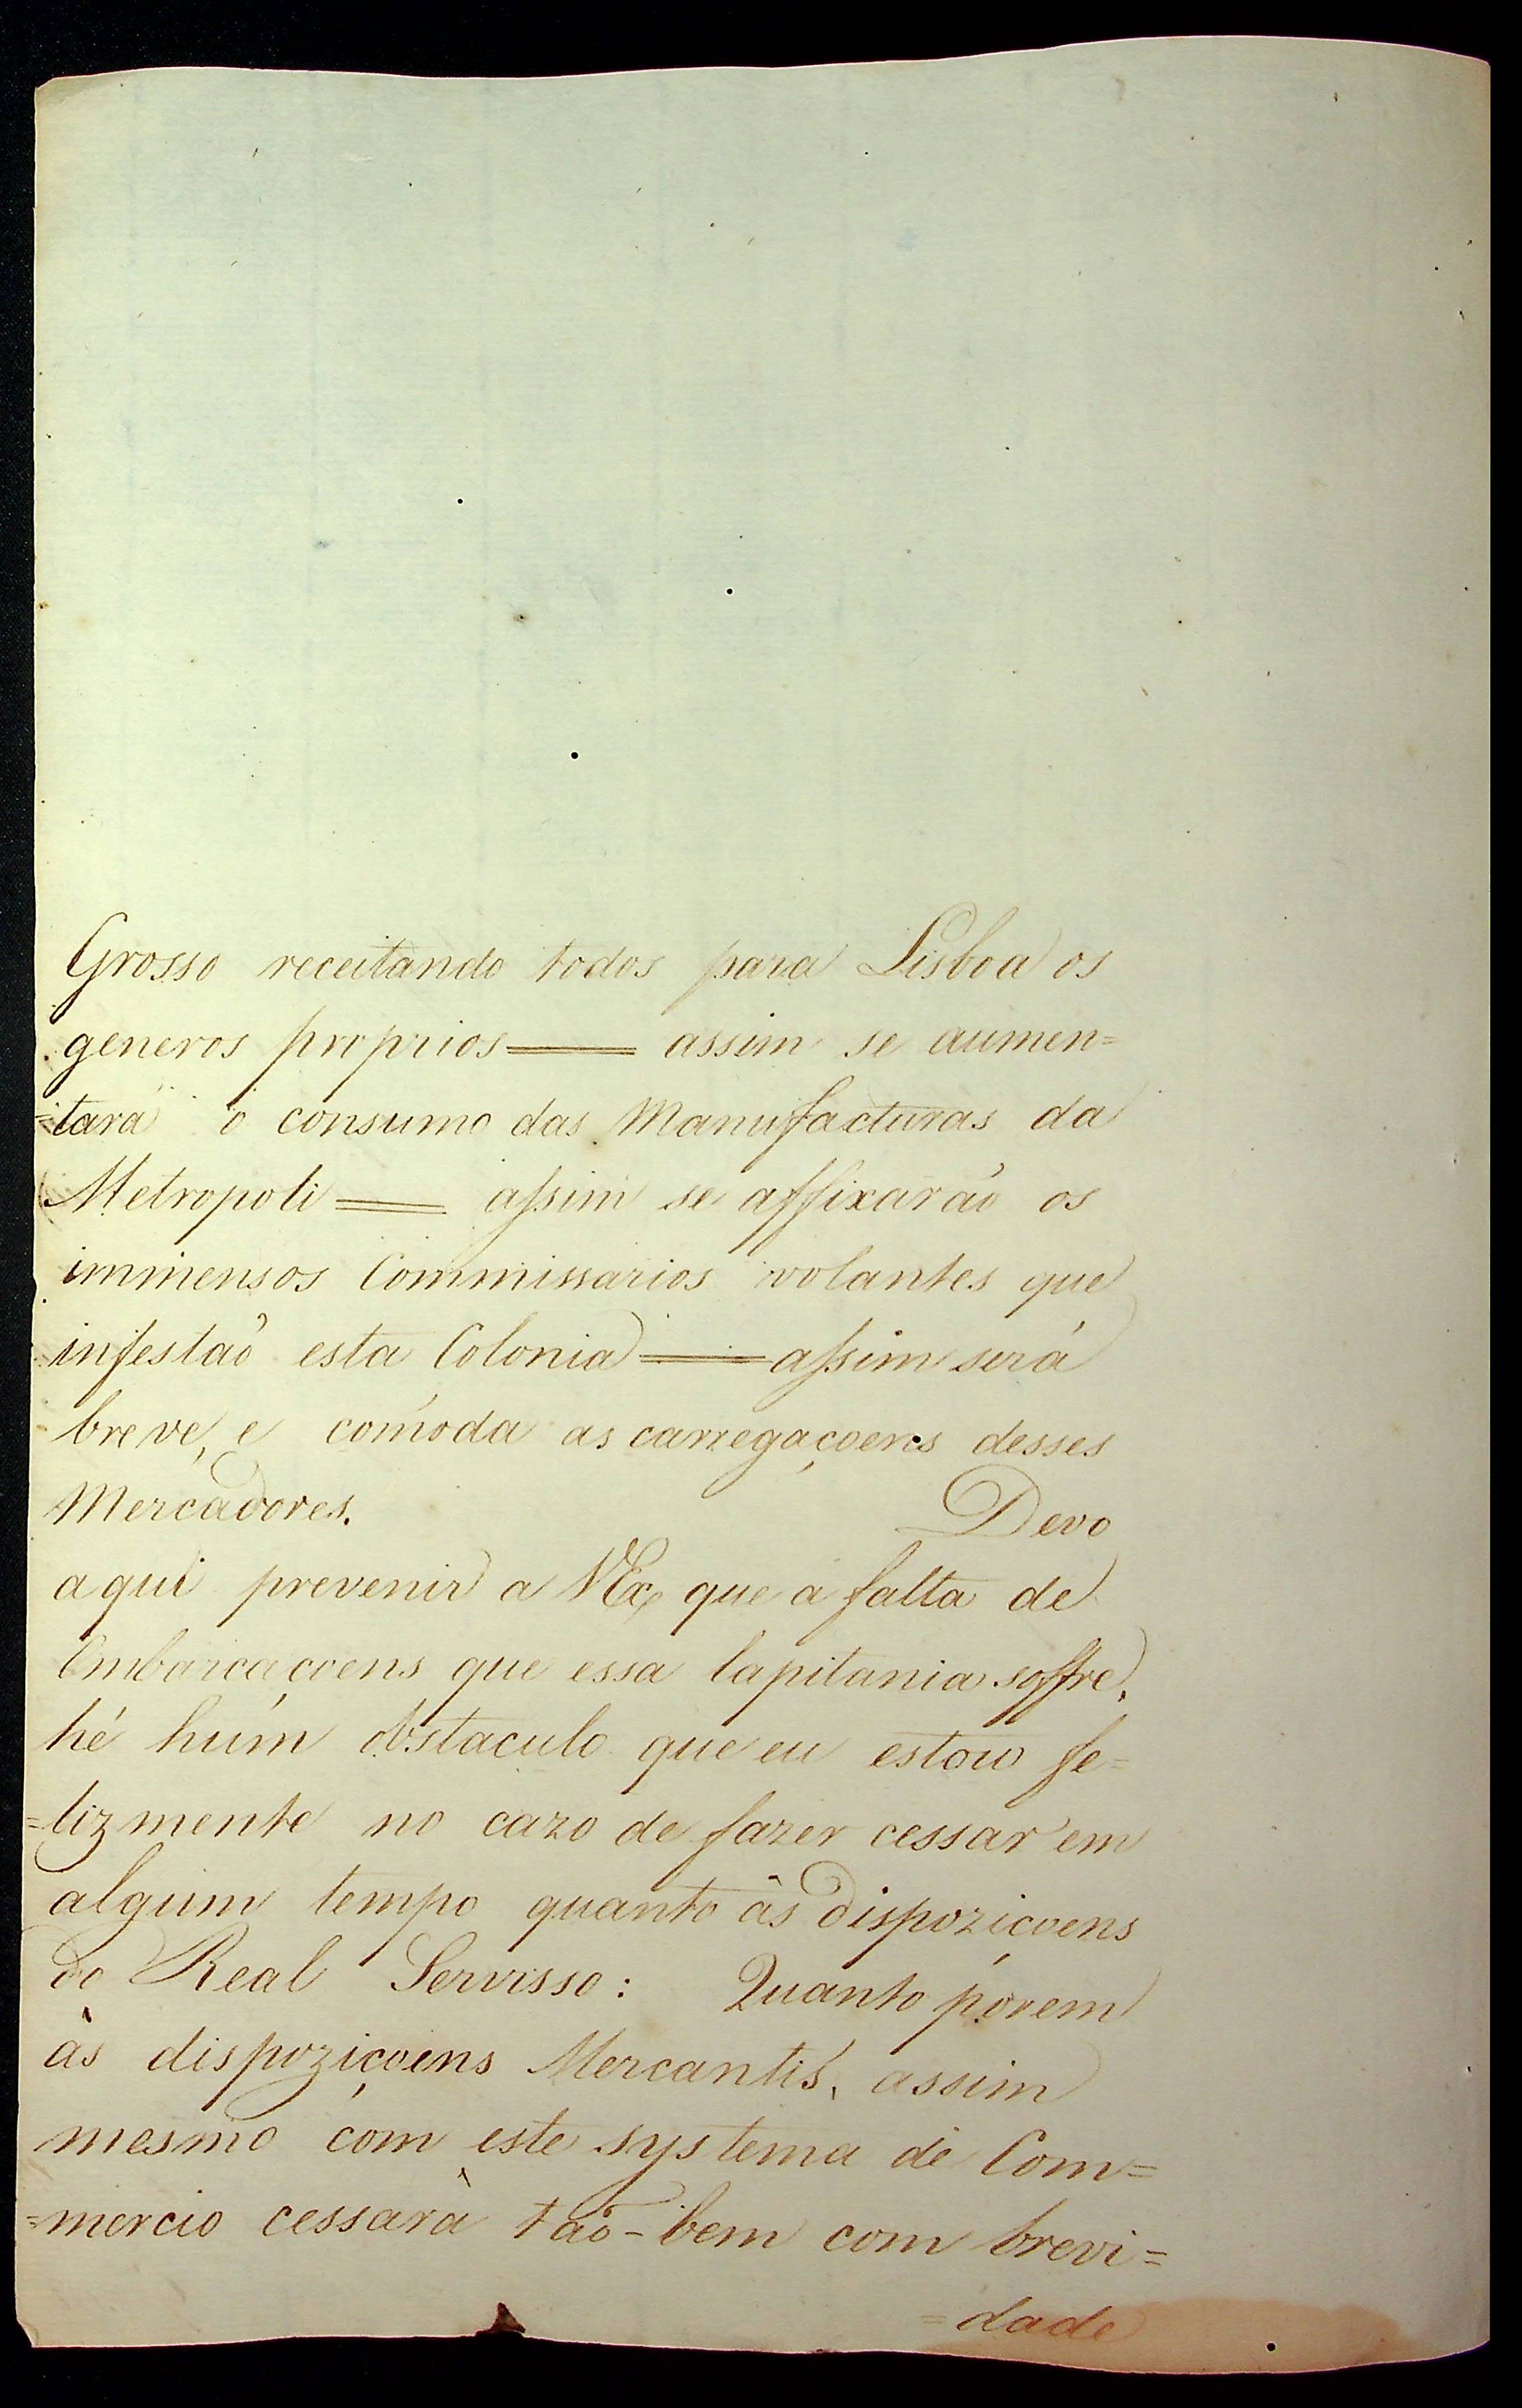 Grosso receitando todos para Lisboa os
generos proprios == assim se aumen=
=tará o consumo das Manufacturas da
Metropoli == aſsim se affixaráõ os
immensos Commissarios volantes que
infestaõ esta Colonia == aſsim será
breve, e comoda as carregaçoens desses
Mercadores. Devo
aqui prevenir a VEx que a falta de
Embarcaçoens que essa Capitania soffre,
hé húm obstaculo que eu estou fe=
=lizmente no cazo de fazer cessar em
algum tempo quanto às dispoziçoens
do Real Servisso: Quanto porem
às dispoziçoens Mercantis, assim
mesmo com este systema de Com=
=mercio cessarà taõ-bem com brevi=
=dade